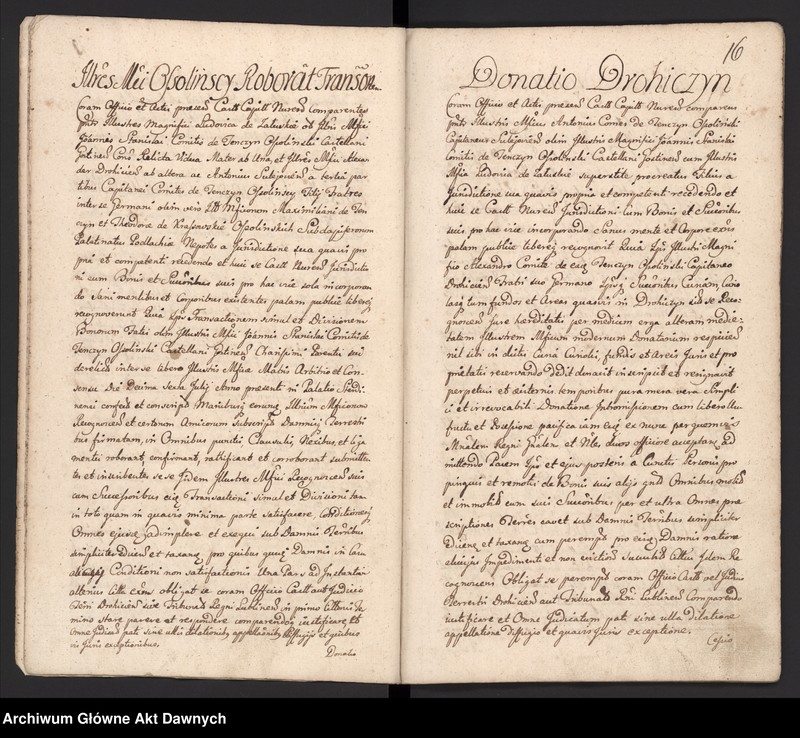 Illres Mfci Ossolinscy Roborat Transõn
Coram Officio et Actis præsen Castr Capitl Nuren comparentes
psnlr Illustres Magnifici Ludovica de Zaluskie olim Illris Mfici
Joannis Stanislai Comitis de Tenczyn Ossolinski Castellani
Relicta Vidua Mater ab una, et Illres Mfici Alexan
der Drohicen ab altera ac Antonius Sulejovien a tertia par
tibus Capitanei Comites de Tenczyn Ossolinscy Filij Fratres
inter se Germani olim Mficorum Maximiliani de Ten
czyn et Theodora de Krassowskie Ossolinskich
Palatinatus Podlachiæ Nepotes a Jurisdictione sua quavis pro
pria et competenti recedendo et huic se Castl Nuren Jurisdictio
ni cum Bonis et Successoribus suis pro hac vice sola incorporan
do Sani mentibus et Corporibus existentes palam publice libereq
recognoverunt Quia Ipsi Transactionem simul et Divisionem
Bonorum Fatis olim Illustris Mfici Joannis Stanislai Comitis de
Tenczyn Ossolinski Castellani Parentis sui
derelict inter se libero Illustris Mfcæ Matris Arbitrio et Con
sensu Die Decima Sexta Julij Anno præsenti in Palatio
confect et conscript Manibusq eorund Illrium Mficorum
Recognoscen et certorum Amicorum Subscript Damnisq Terrestri
bus firmatam, in Omnibus punctis, Clausulis, Nexibus, et liga
mentis roborant, confirmant, ratificant et corroborant submitten
tes et inscribentes se Idem Illustres Mfici Recognoscen suis
cum Successoribus eiq Transactioni simul et Divisioni tam
in toto quam in quavis minima parte satisfacere, Conditionesq
Omnes ejusq adimplere et exequi sub Damnis Terribus
simpliciter Dicen et taxanq pro quibus quoq Damnis in casu
alicujus Conditioni non satisfactionis Una Pars ad Instantiam
alterius obligat se coram Officio Castl aut Judicio
Terr Drohicien sive Tribunal Regni Lublinen in primo Citationis Ter
mino stare parere et respondere comparendoq justificare et
Omne Judicatu pati sine ullis dilationibq appellationibq diffugijs et quibus
vis Juris exceptionibus.
Donatio
16
Donatio Drohiczyn
Coram Officio et Actis præsen Castl Capitl Nuren comparens
psnlr Illustris Mficus Antonius Comes de Tenczyn Ossolinski
Capitaneus Sulejovien olim Illustris Magnifici Joannis Stanislai
Comitis de Tenczyn Ossolinski Castellani cum Illustri
Mfica Ludovica de Zaluskie superstite procreatus Filius a
Jurisdictione sua quavis propria et competenti recedendo et
huic se Castl Nuren Jurisdictioni cum Bonis et Successoribus
suis pro hac vice incorporando sanus mente et Corpore exis
palam publice libereq recognovit Quia Ipse Illustri Magni
fico Alexandro Comiti de eadq Tenczyn Ossolinski Capitaneo
Drohicien Fratri suo Germano Ipsiq Successoribus Curiam
tum fundos et Areas quasvis in Drohiczyn sibi se Reco
gnoscen Jure hæreditatis per medium erga alteram medie
tatem Illustrem Mficum modernum Donatarium respicien
nil sibi in dictis Curia Curiolis, fundis et Areis Juris et pro
prietatis reservando Dedit donavit inscripsit et resignavit
perpetuis et æternis temporibus pura mera vera Simpli
ci et irrevocabili Donatione Intromissionem cum libero Usu
fructu et Possessione pacifica iam eiq ex nunc per quemvis
Mnalem Regni Gnalem et Nbles duos officiose acceptanq ad
mittendo Pacem Ipsi et ejus posteris a Cunctis Personis pro
pinquis et remotis de Bonis suis alijs qnd Omnibus mobil
et immobil cum suis Successoribus per et ultra Omnes præ
scriptiones Terres cavet sub Damnis Terribus simpliciter
Dicenq et taxanq cum perempto pro eisq Damnis ratione
alicujus Impedimenti et non evictionis Citari Idem Re
cognoscens Obligat se perempto coram Officio Castl vel Judicio
Terrestri Drohicien aut Tribunal Rni Lublinen Comparendo
justificare et Omne Judicatum pati sine ulla Dilatione
appellatione diffugio et quavis Juris exceptione.
Cessio
Archiwum Główne Akt Dawnych